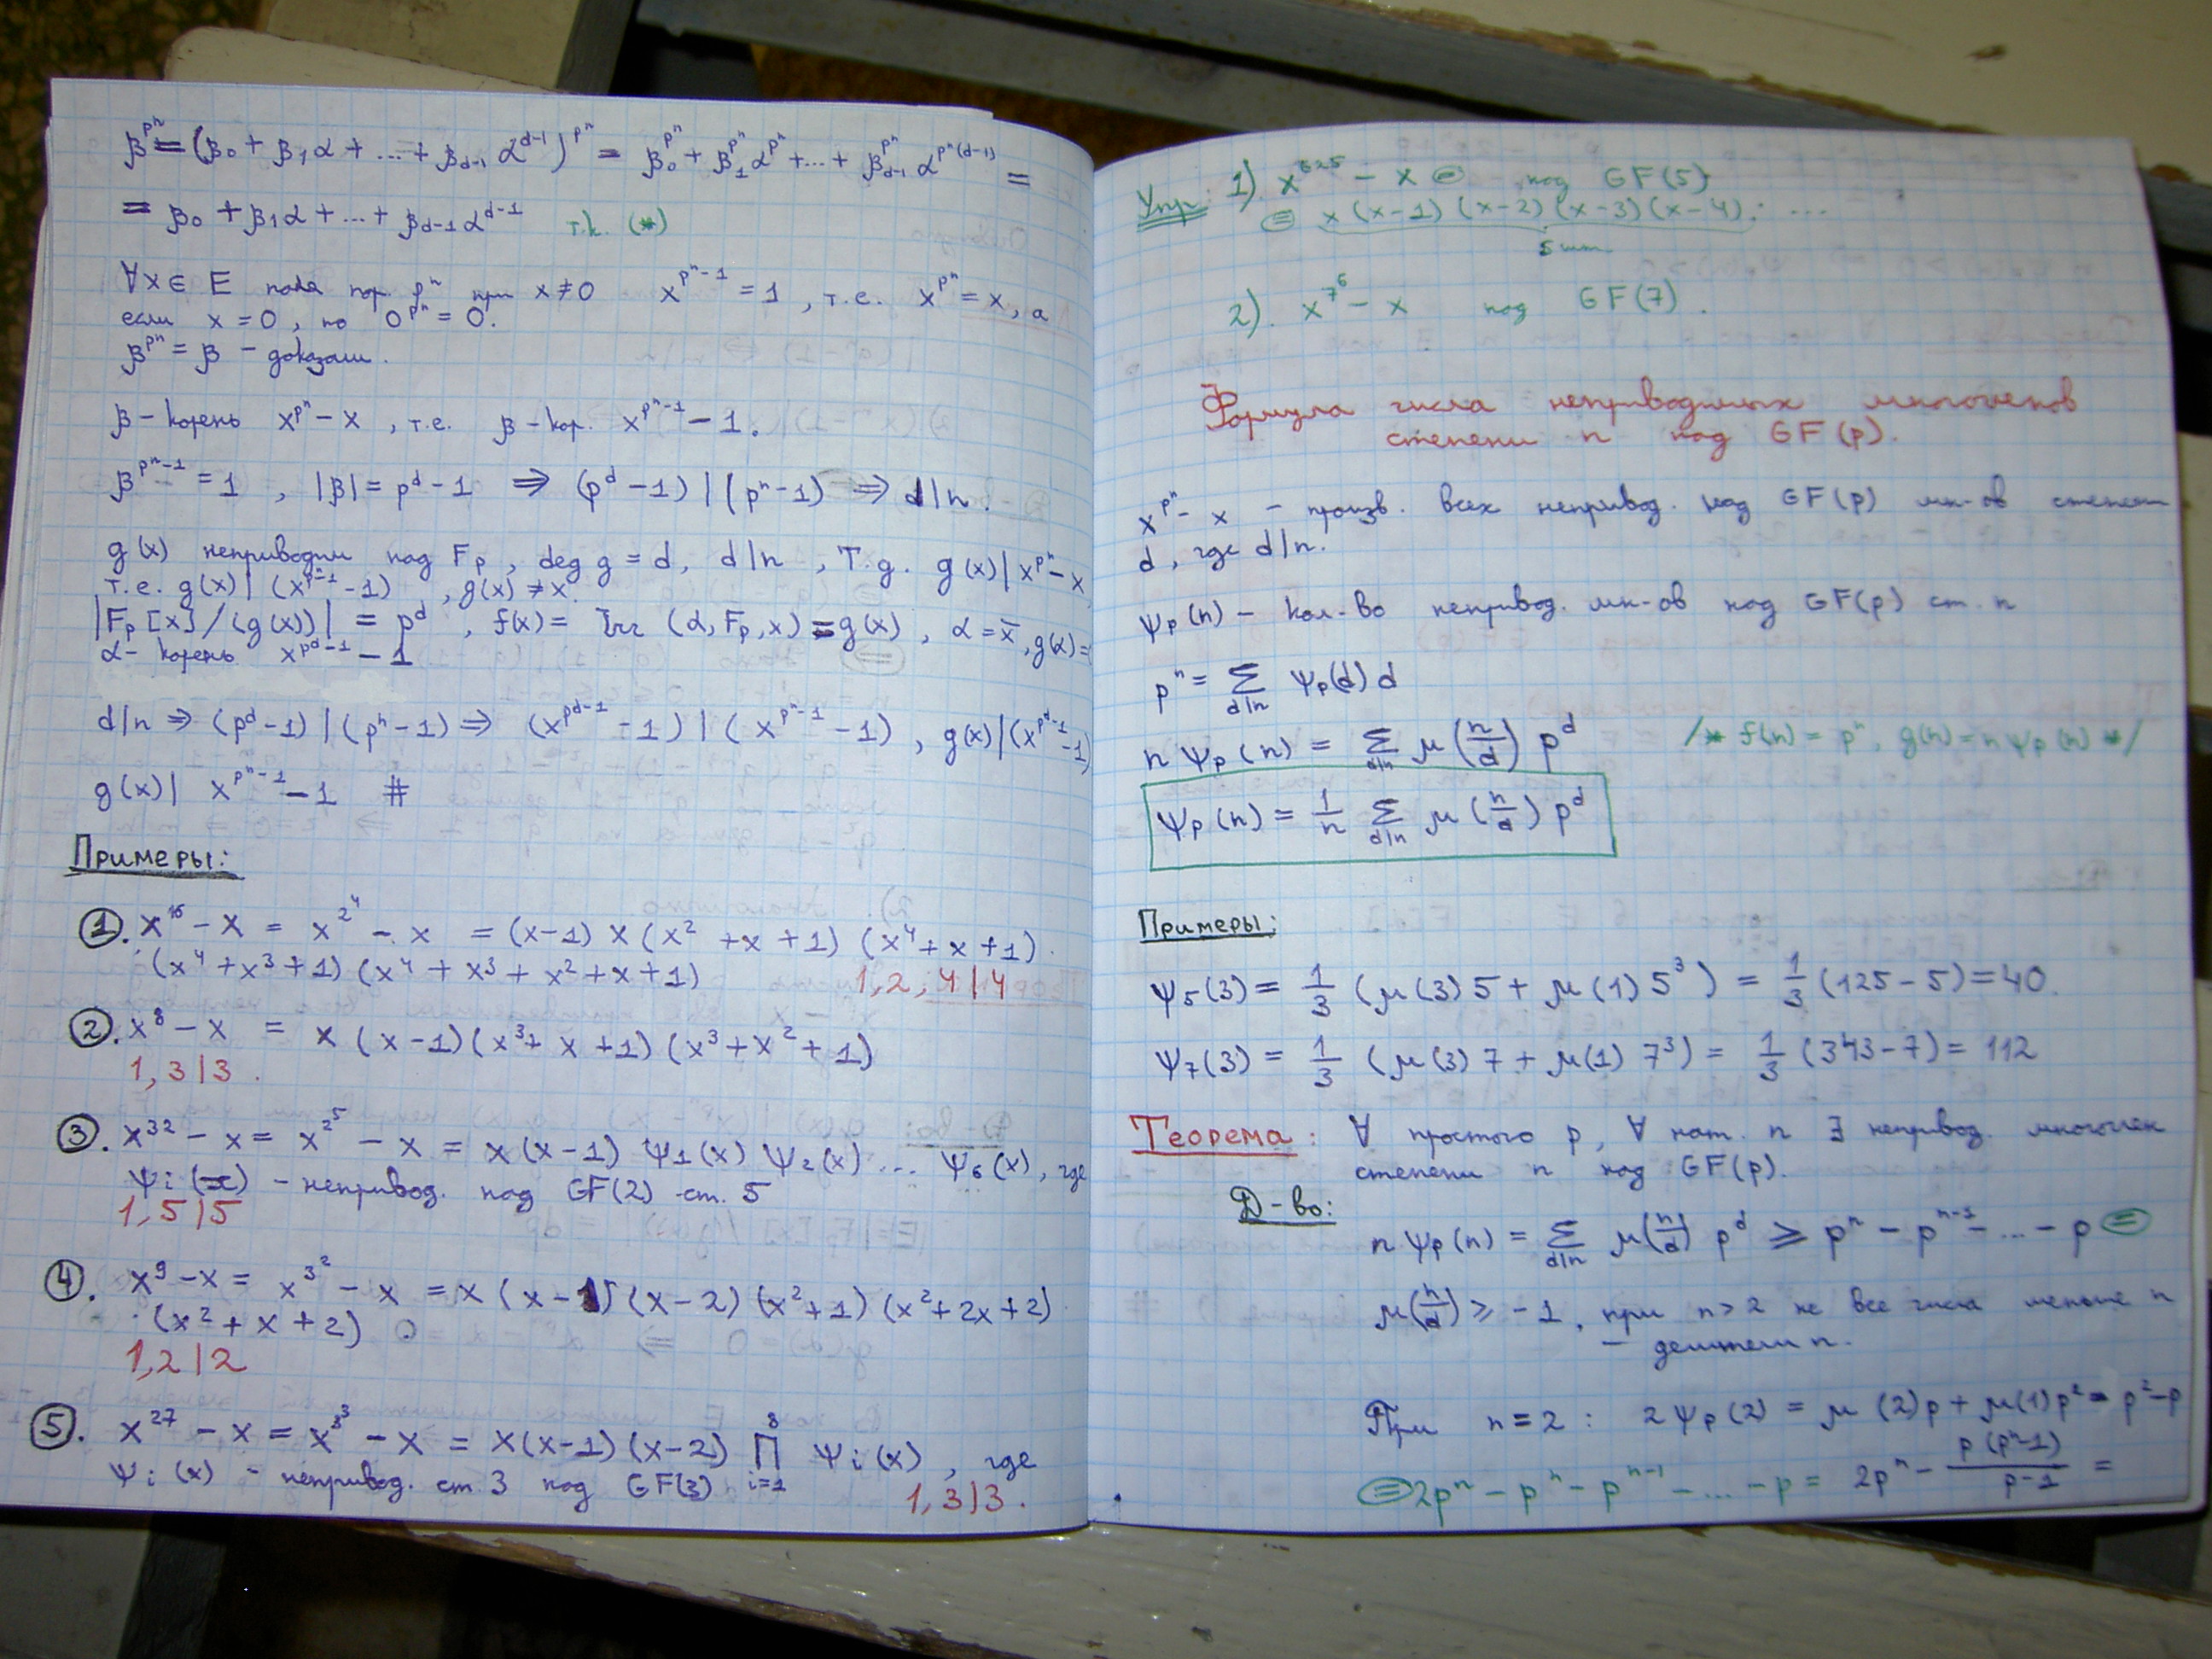 β^{pⁿ} = (β₀ + β₁α + ... + β_{d-1} α^{d-1})^{pⁿ} = β₀^{pⁿ} + β₁^{pⁿ} α^{pⁿ} + ... + β_{d-1}^{pⁿ} α^{pⁿ(d-1)} =
= β₀ + β₁α + ... + β_{d-1} α^{d-1} т.к. (*)
∀x ∈ E поля пор. pⁿ при x ≠ 0 x^{pⁿ-1} = 1, т.е. x^{pⁿ} = x, а
если x = 0, то 0^{pⁿ} = 0.
β^{pⁿ} = β - доказали.
β - корень x^{pⁿ} - x, т.е. β - кор. x^{pⁿ-1} - 1.
β^{pⁿ-1} = 1, |β| = p^d - 1 ⇒ (p^d - 1) | (pⁿ - 1) ⇒ d | n.
g(x) неприводим над F_p, deg g = d, d | n, Т.д. g(x) | x^{pⁿ} - x
т.е. g(x) | (x^{pⁿ-1} - 1), g(x) ≠ x.
|F_p[x] / (g(x))| = p^d, f(x) = Irr (α, F_p, x) = g(x), α = x̄, g(α) =
α - корень x^{p^d-1} - 1
d | n ⇒ (p^d - 1) | (pⁿ - 1) ⇒ (x^{p^d-1} - 1) | (x^{pⁿ-1} - 1), g(x) | (x^{p^d-1} - 1)
g(x) | x^{pⁿ-1} - 1 #
Примеры:
①. x¹⁶ - x = x^{2⁴} - x = (x-1) x (x² + x + 1) (x⁴ + x + 1) ·
· (x⁴ + x³ + 1) (x⁴ + x³ + x² + x + 1) 1, 2, 4 | 4
②. x⁸ - x = x (x-1) (x³ + x + 1) (x³ + x² + 1)
1, 3 | 3.
③. x³² - x = x^{2⁵} - x = x (x-1) ψ₁(x) ψ₂(x) ... ψ₆(x), где
ψᵢ(x) - непривод. над GF(2) ст. 5
1, 5 | 5
④. x⁹ - x = x^{3²} - x = x (x-1) (x-2) (x²+1) (x²+2x+2) ·
· (x² + x + 2)
1, 2 | 2
⑤. x²⁷ - x = x^{3³} - x = x (x-1) (x-2) ∏_{i=1}^{8} ψᵢ(x), где
ψᵢ(x) - непривод. ст. 3 над GF(3) 1, 3 | 3.
Упр: 1). x⁶²⁵ - x ⊜ над GF(5)
⊜ x (x-1) (x-2) (x-3) (x-4) · ...
5 шт.
2). x^{7⁶} - x над GF(7).
Формула числа неприводимых многочленов
степени n над GF(p).
x^{pⁿ} - x - произв. всех непривод. над GF(p) мн-ов степени
d, где d | n.
ψ_p(n) - кол-во непривод. мн-ов над GF(p) ст. n
pⁿ = Σ_{d|n} ψ_p(d) d
n ψ_p(n) = Σ_{d|n} μ(n/d) p^d /* f(n) = pⁿ, g(n) = n ψ_p(n) */
ψ_p(n) = 1/n Σ_{d|n} μ(n/d) p^d
Примеры:
ψ₅(3) = 1/3 (μ(3) 5 + μ(1) 5³) = 1/3 (125 - 5) = 40.
ψ₇(3) = 1/3 (μ(3) 7 + μ(1) 7³) = 1/3 (343 - 7) = 112
Теорема: ∀ простого p, ∀ нат. n ∃ непривод. многочлен
степени n над GF(p).
Д-во:
n ψ_p(n) = Σ_{d|n} μ(n/d) p^d ⩾ pⁿ - p^{n-1} - ... - p ⊜
μ(n/d) ⩾ -1, при n > 2 не все числа меньше n
- делители n.
При n = 2: 2 ψ_p(2) = μ(2) p + μ(1) p² = p² - p
⊜ 2pⁿ - pⁿ - p^{n-1} - ... - p = 2pⁿ - p(pⁿ-1)/(p-1) =